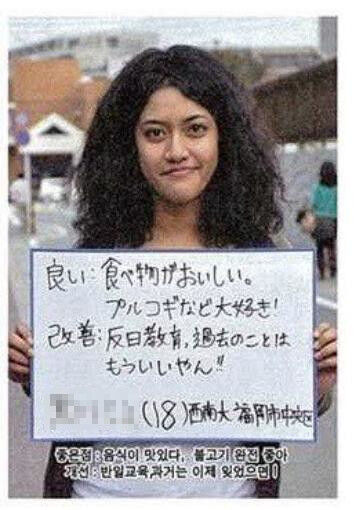 良い：食べ物がおいしい。
プルコギなど大好き！
改善：反日教育，過去のことは
もういいやん!!
(18) 西南大 福岡市中央区
좋은점 : 음식이 맛있다, 불고기 완전 좋아
개선 : 반일교육,과거는 이제 잊었으면!